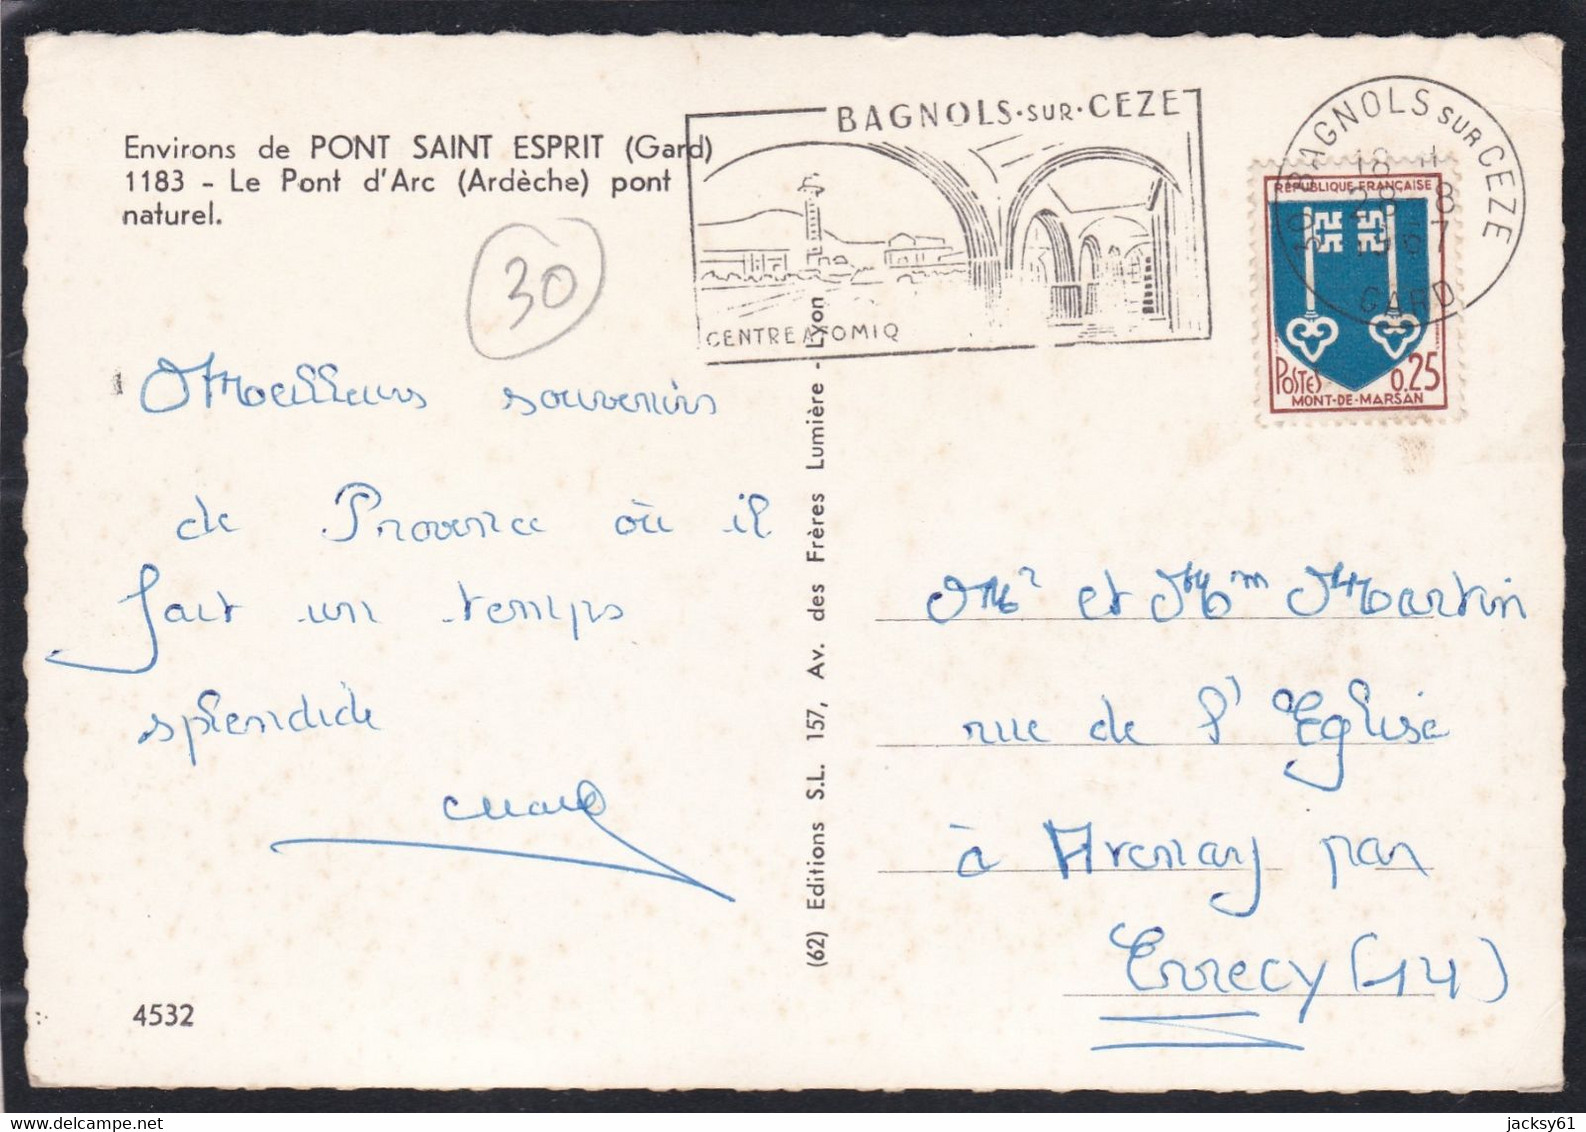 Environs de PONT SAINT ESPRIT (Gard)
1183 - Le Pont d'Arc (Ardèche) pont
naturel.
30
BAGNOLS-SUR-CEZE
CENTRE ATOMIQ
30 BAGNOLS SUR CEZE
18 H
28-8
1967
GARD
RÉPUBLIQUE FRANÇAISE
POSTES 0.25
MONT-DE-MARSAN
Meilleurs souvenirs
de Provence où il
fait un temps
splendide
4532
(62) Editions S.L. 157, Av. des Frères Lumière - Lyon
Mr et Mm Martin
rue de l'Eglise
à par
Errecy (14)
jacksy61